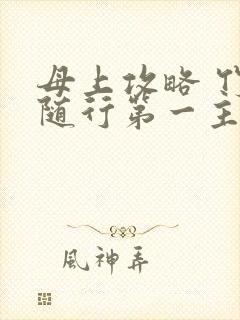 母上攻略
随行第一主
風神弄